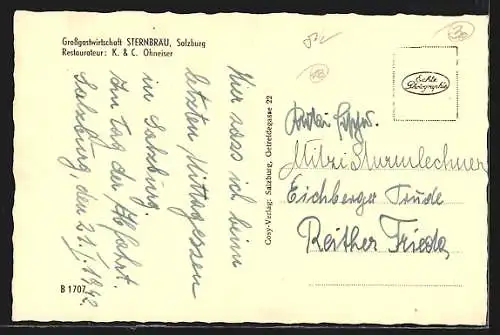 Großgastwirtschaft STERNBRÄU, Salzburg
Restaurateur: K. & C. Ohneiser
Hier sass ich beim
letzten Mittagessen
in Salzburg.
Am Tag der Abfahrt.
Salzburg, den 21. 1942.
B 1707
Cosy-Verlag: Salzburg, Getreidegasse 22
Echte
Photographie
Mitzi Sturmlechner
Eichberger Trude
Reither Frieda